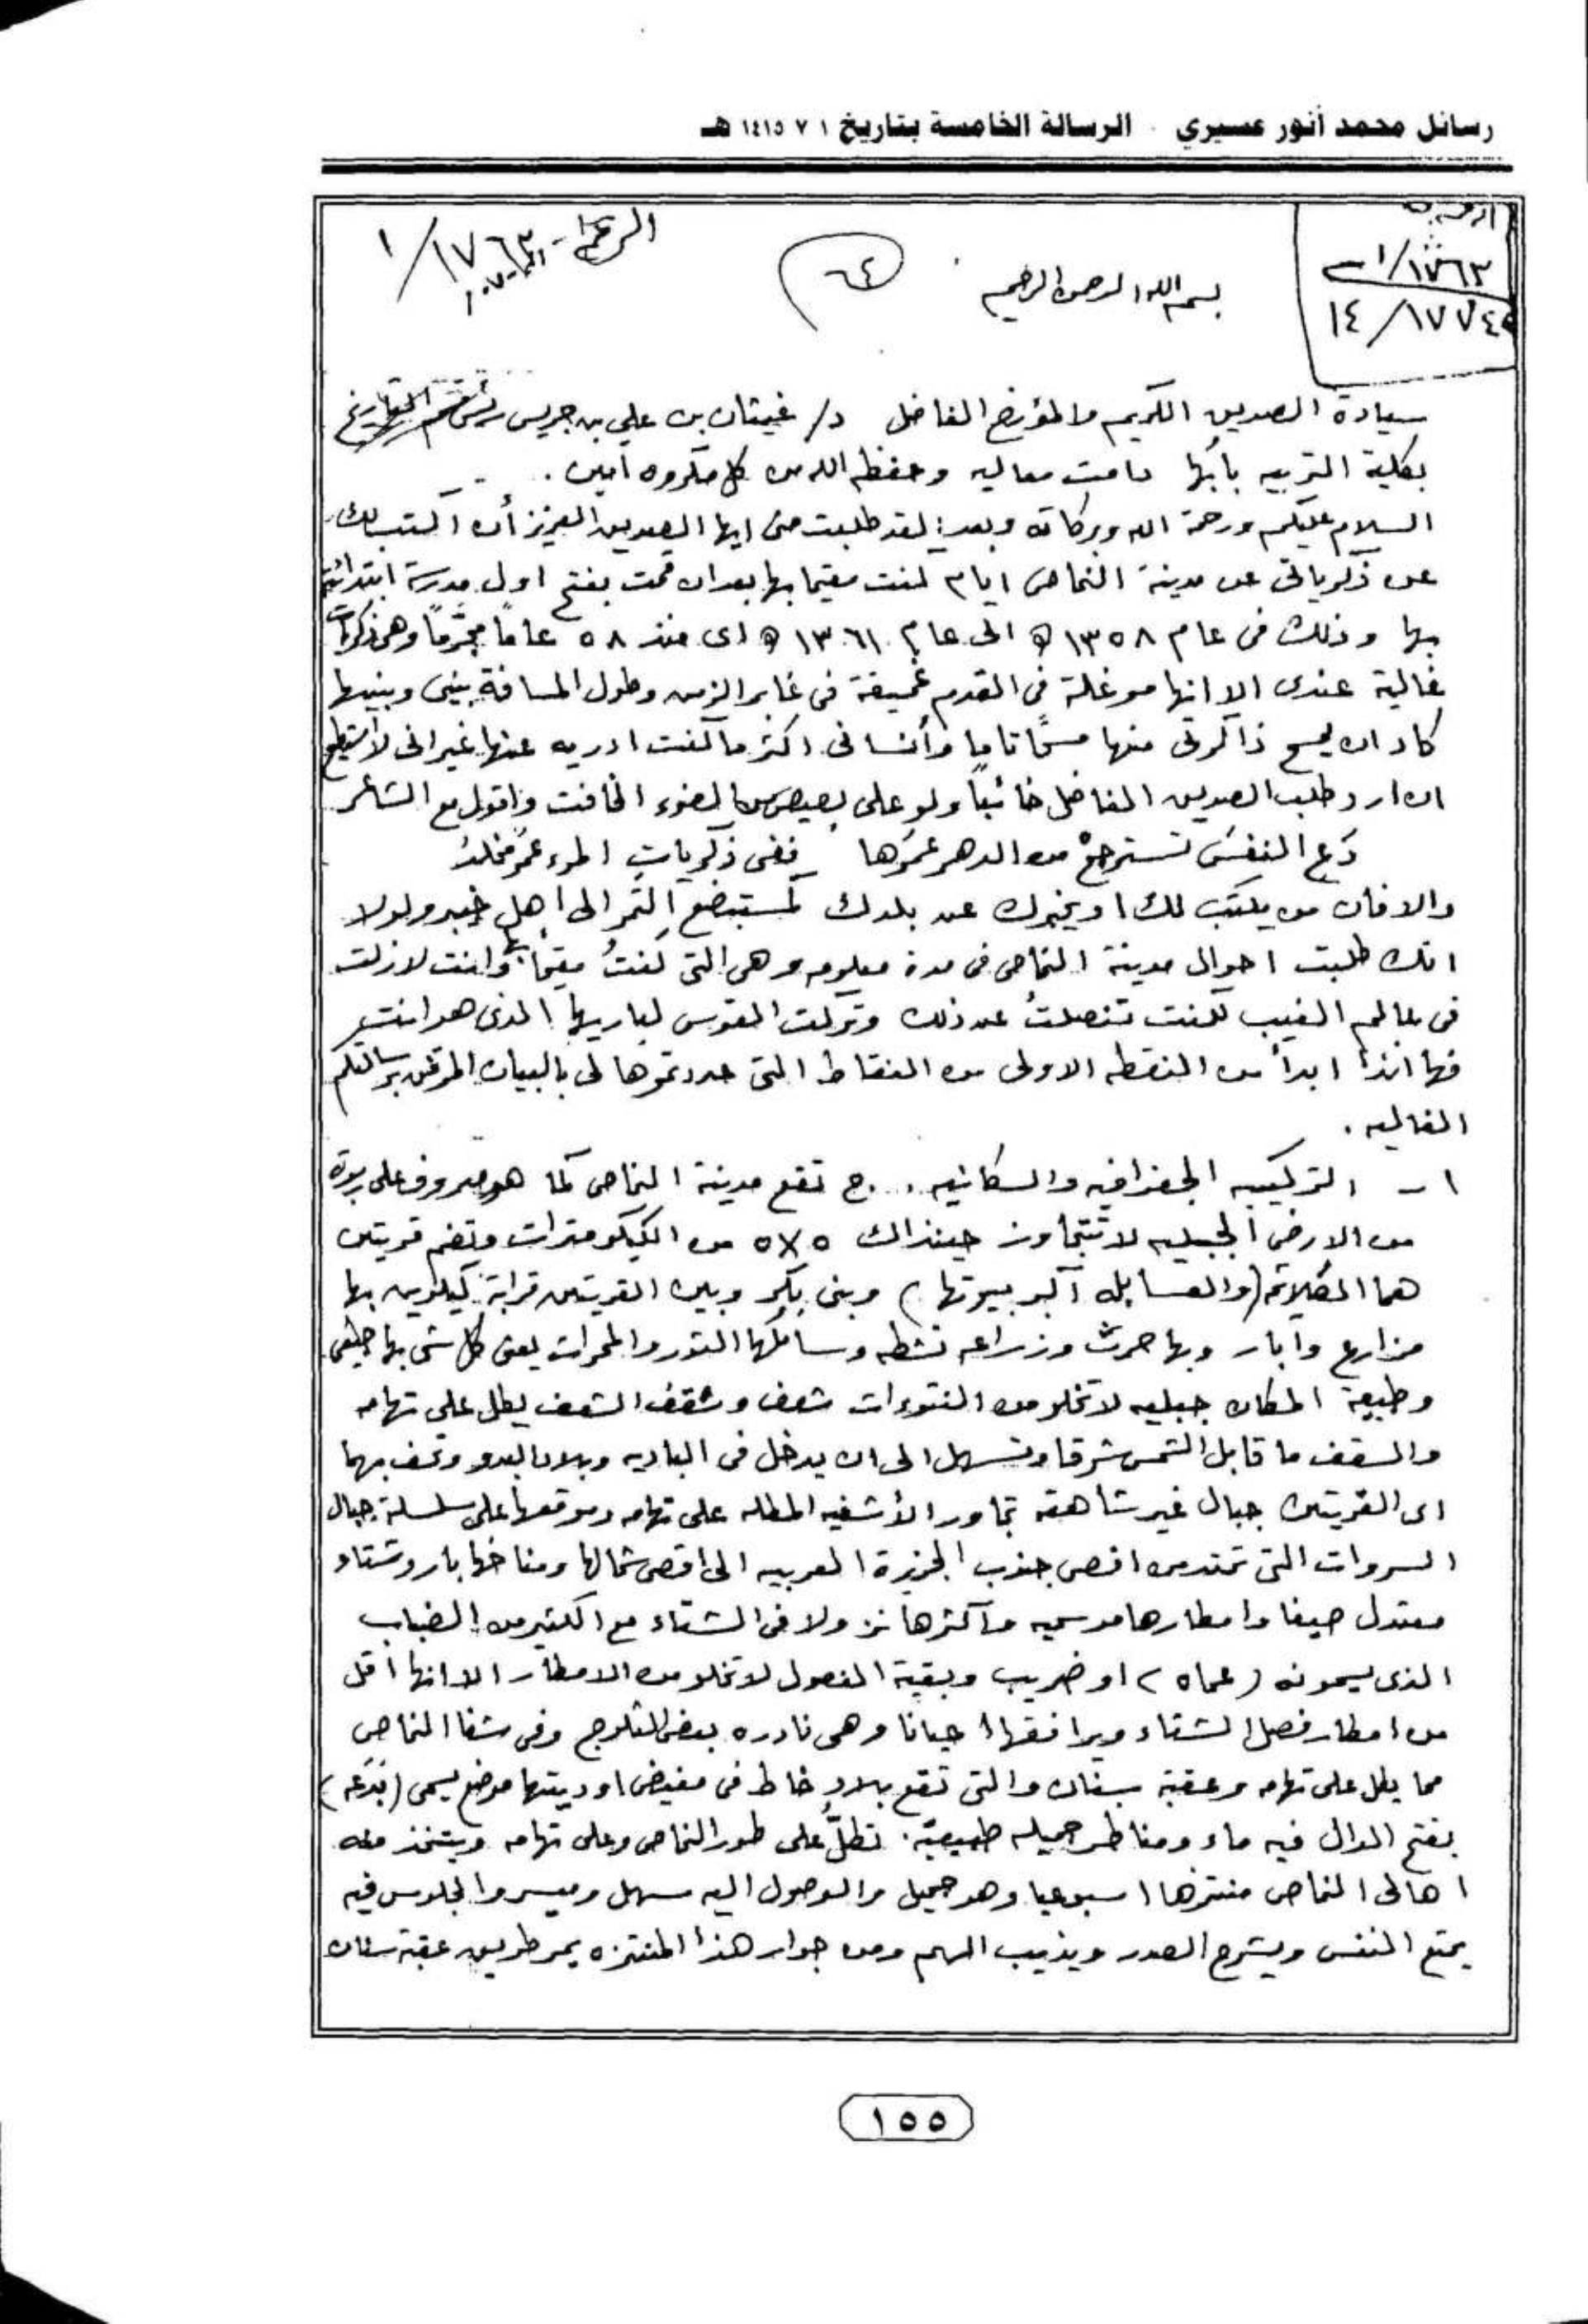 رسائل محمد أنور عسيري الرسالة الخامسة بتاريخ ١ ٧ ١٤١٥ هـ
١٧٦٣/١
١٧٦٣/١
١٤/١٧٧٤
٦٤
بسم الله الرحمن الرحيم
سيادة الصديق الكريم والمؤرخ الفاضل د/ غيثان بن علي بن جريس رئيس قسم التاريخ
بكلية التربيه بأبها دامت معاليه وحفظه الله من كل مكروه آمين .
السلام عليكم ورحمة الله وبركاته وبعد: لقد طلبت منى ايها الصديق العزيز أن اكتب لك
عن ذكرياتى عن مدينة النماص ايام كنت مقيما بها بعد ان قمت بفتح اول مدرسة ابتدائية
بها وذلك فى عام ١٣٥٨ ه الى عام ١٣٦١ ه اى منذ ٥٨ عاماً مجرَّماً وهى ذكريات
غالية عندى الا انها موغلة فى القدم عميقة فى غابر الزمن وطول المسافة بينى وبينها
كاد ان يمسح ذاكرتى منها مسحًا تاما وأنسانى اكثر ما كنت ادريه عنها غير انى لا استطيع
ان ارد طلب الصديق الفاضل خائباً ولو على بصيص من الضوء الخافت واقول مع الشاعر
دَع النفسَ تسترجعْ من الدهر عمرَها ففى ذكرياتِ المرء عمرٌ مخلدُ
والا فان من يكتب لك او يخبرك عن بلدك كمستبضع التمر الى اهل خيبر ولولا
انك طلبت احوال مدينة النماص فى مدة معلومه وهى التى كنتُ مقيماً بها وانت لازلت
فى عالم الغيب لكنت تنصلتُ عن ذلك وتركت القوس لباريها الذى هو انت
فها انذا ابدأ من النقطه الاولى من النقاط التى حددتموها لى بالبيان المرفق برسالتكم
الغاليه .
١ - التركيبه الجغرافيه والسكانيه . . ج تقع مدينة النماص كما هو معروف على ربوة
من الارض الجبليه لا تتجاوز حينذاك ٥×٥ من الكيلومترات وتضم قريتين
هما الكلاثمه (والعسابله اكبر بيوتها) وبنى بكر وبين القريتين قرابة كيلوين بها
مزارع وابار وبها حرث وزراعه نشطه وسائلها الثور والمحراث يعنى كل شى بها طبيعى
وطبيعة المكان جبليه لا تخلو من النتوءات شعف وشقف الشعف يطل على تهامه
والسقف ما قابل الشمس شرقا وتسهل الى ان يدخل فى الباديه وبلاد البدو وتحف بهما
اى القريتين جبال غير شاهقة تجاور الأشفيه المطله على تهامه وموقعها على سلسلة جبال
السروات التى تمتد من اقصى جنوب الجزيرة العربيه الى اقصى شمالها ومناخها بارد شتاء
معتدل صيفا وامطارها موسميه واكثرها نزولا فى الشتاء مع الكثير من الضباب
الذى يسمونه (عماه) او ضريب وبقية الفصول لا تخلو من الامطار الا انها اقل
من امطار فصل الشتاء ويرافقها احيانا وهى نادره بعض الثلوج وفى شفا النماص
مما يطل على تهامه وعقبة سنان والتى تقع ببلاد خاط فى مفيض اوديتها موضع يسمى (بَدَعه)
بفتح الدال فيه ماء ومناظر جميله طبيعية . تطلُّ على طور النماص وعلى تهامه ويتخذ منه
اهالى النماص منتزها اسبوعيا وهو جميل والوصول اليه سهل وميسر والجلوس فيه
يمتع النفس ويشرح الصدر ويذيب الهم ومن جوار هذا المنتزه يمر طريق عقبة سنان
١٥٥